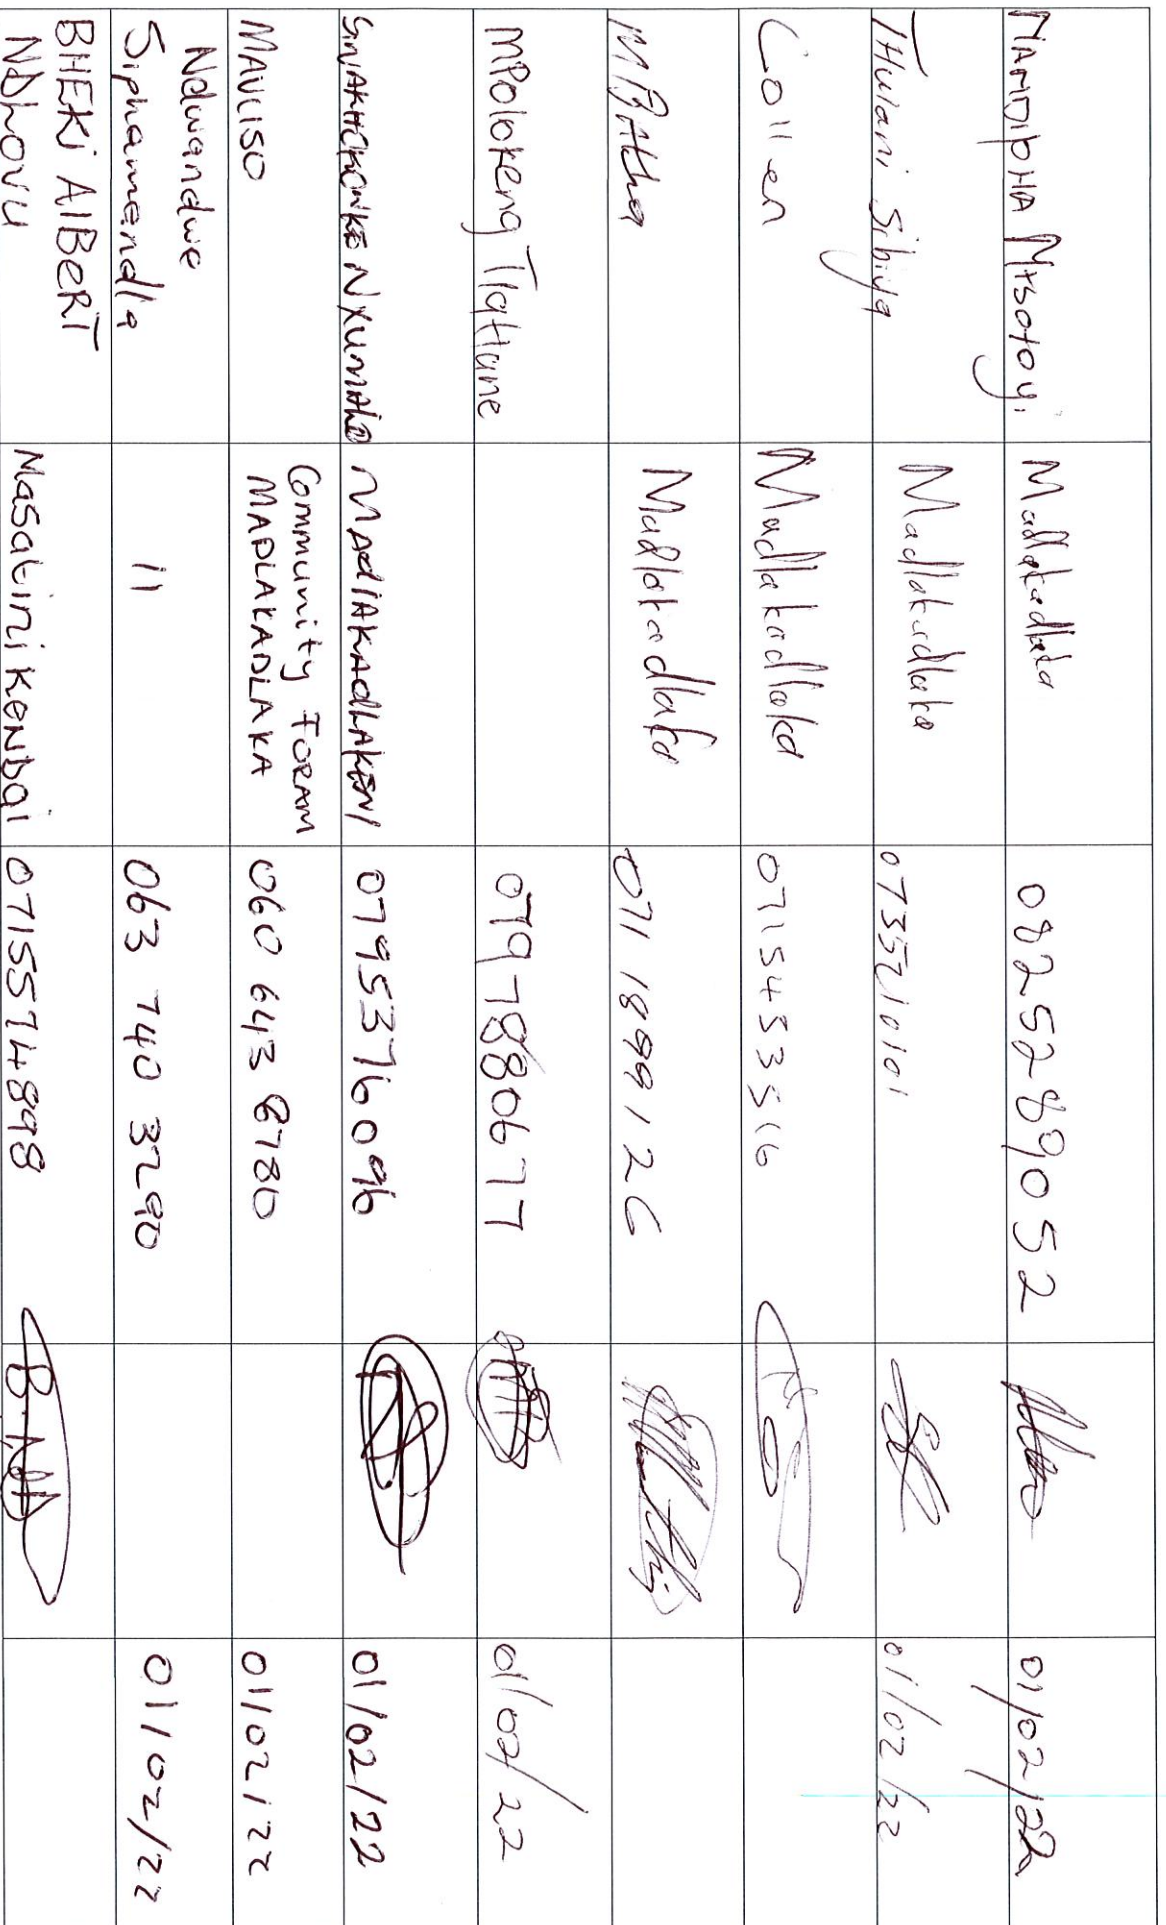 NANDIPHA Mtsotoyi Madlakadlaka 0825289052 01/02/22
THulani Sibiya Madlakadlaka 0735210101 01/02/22
Collen Madlakadlaka 0715453516
MBAtha Madlakadlaka 071 1899126
MPolokeng Tlatlane 0797880677 01/02/22
NxumAlo MAdlAKAdLAKENI 0795376096 01/02/22
MAVUSO Community FORAM
MADLAKADLAKA 060 643 8780 01/02/22
Ndwandwe
Siphamandla 11 063 740 3290 01/02/22
BHEKi AlBERT
NDhlOVU Masatini KENDAl 0715574898 B.ND